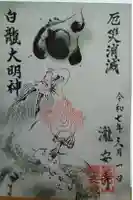 厄災消滅
白龍大明神
令和七年六月一日
瀧安寺